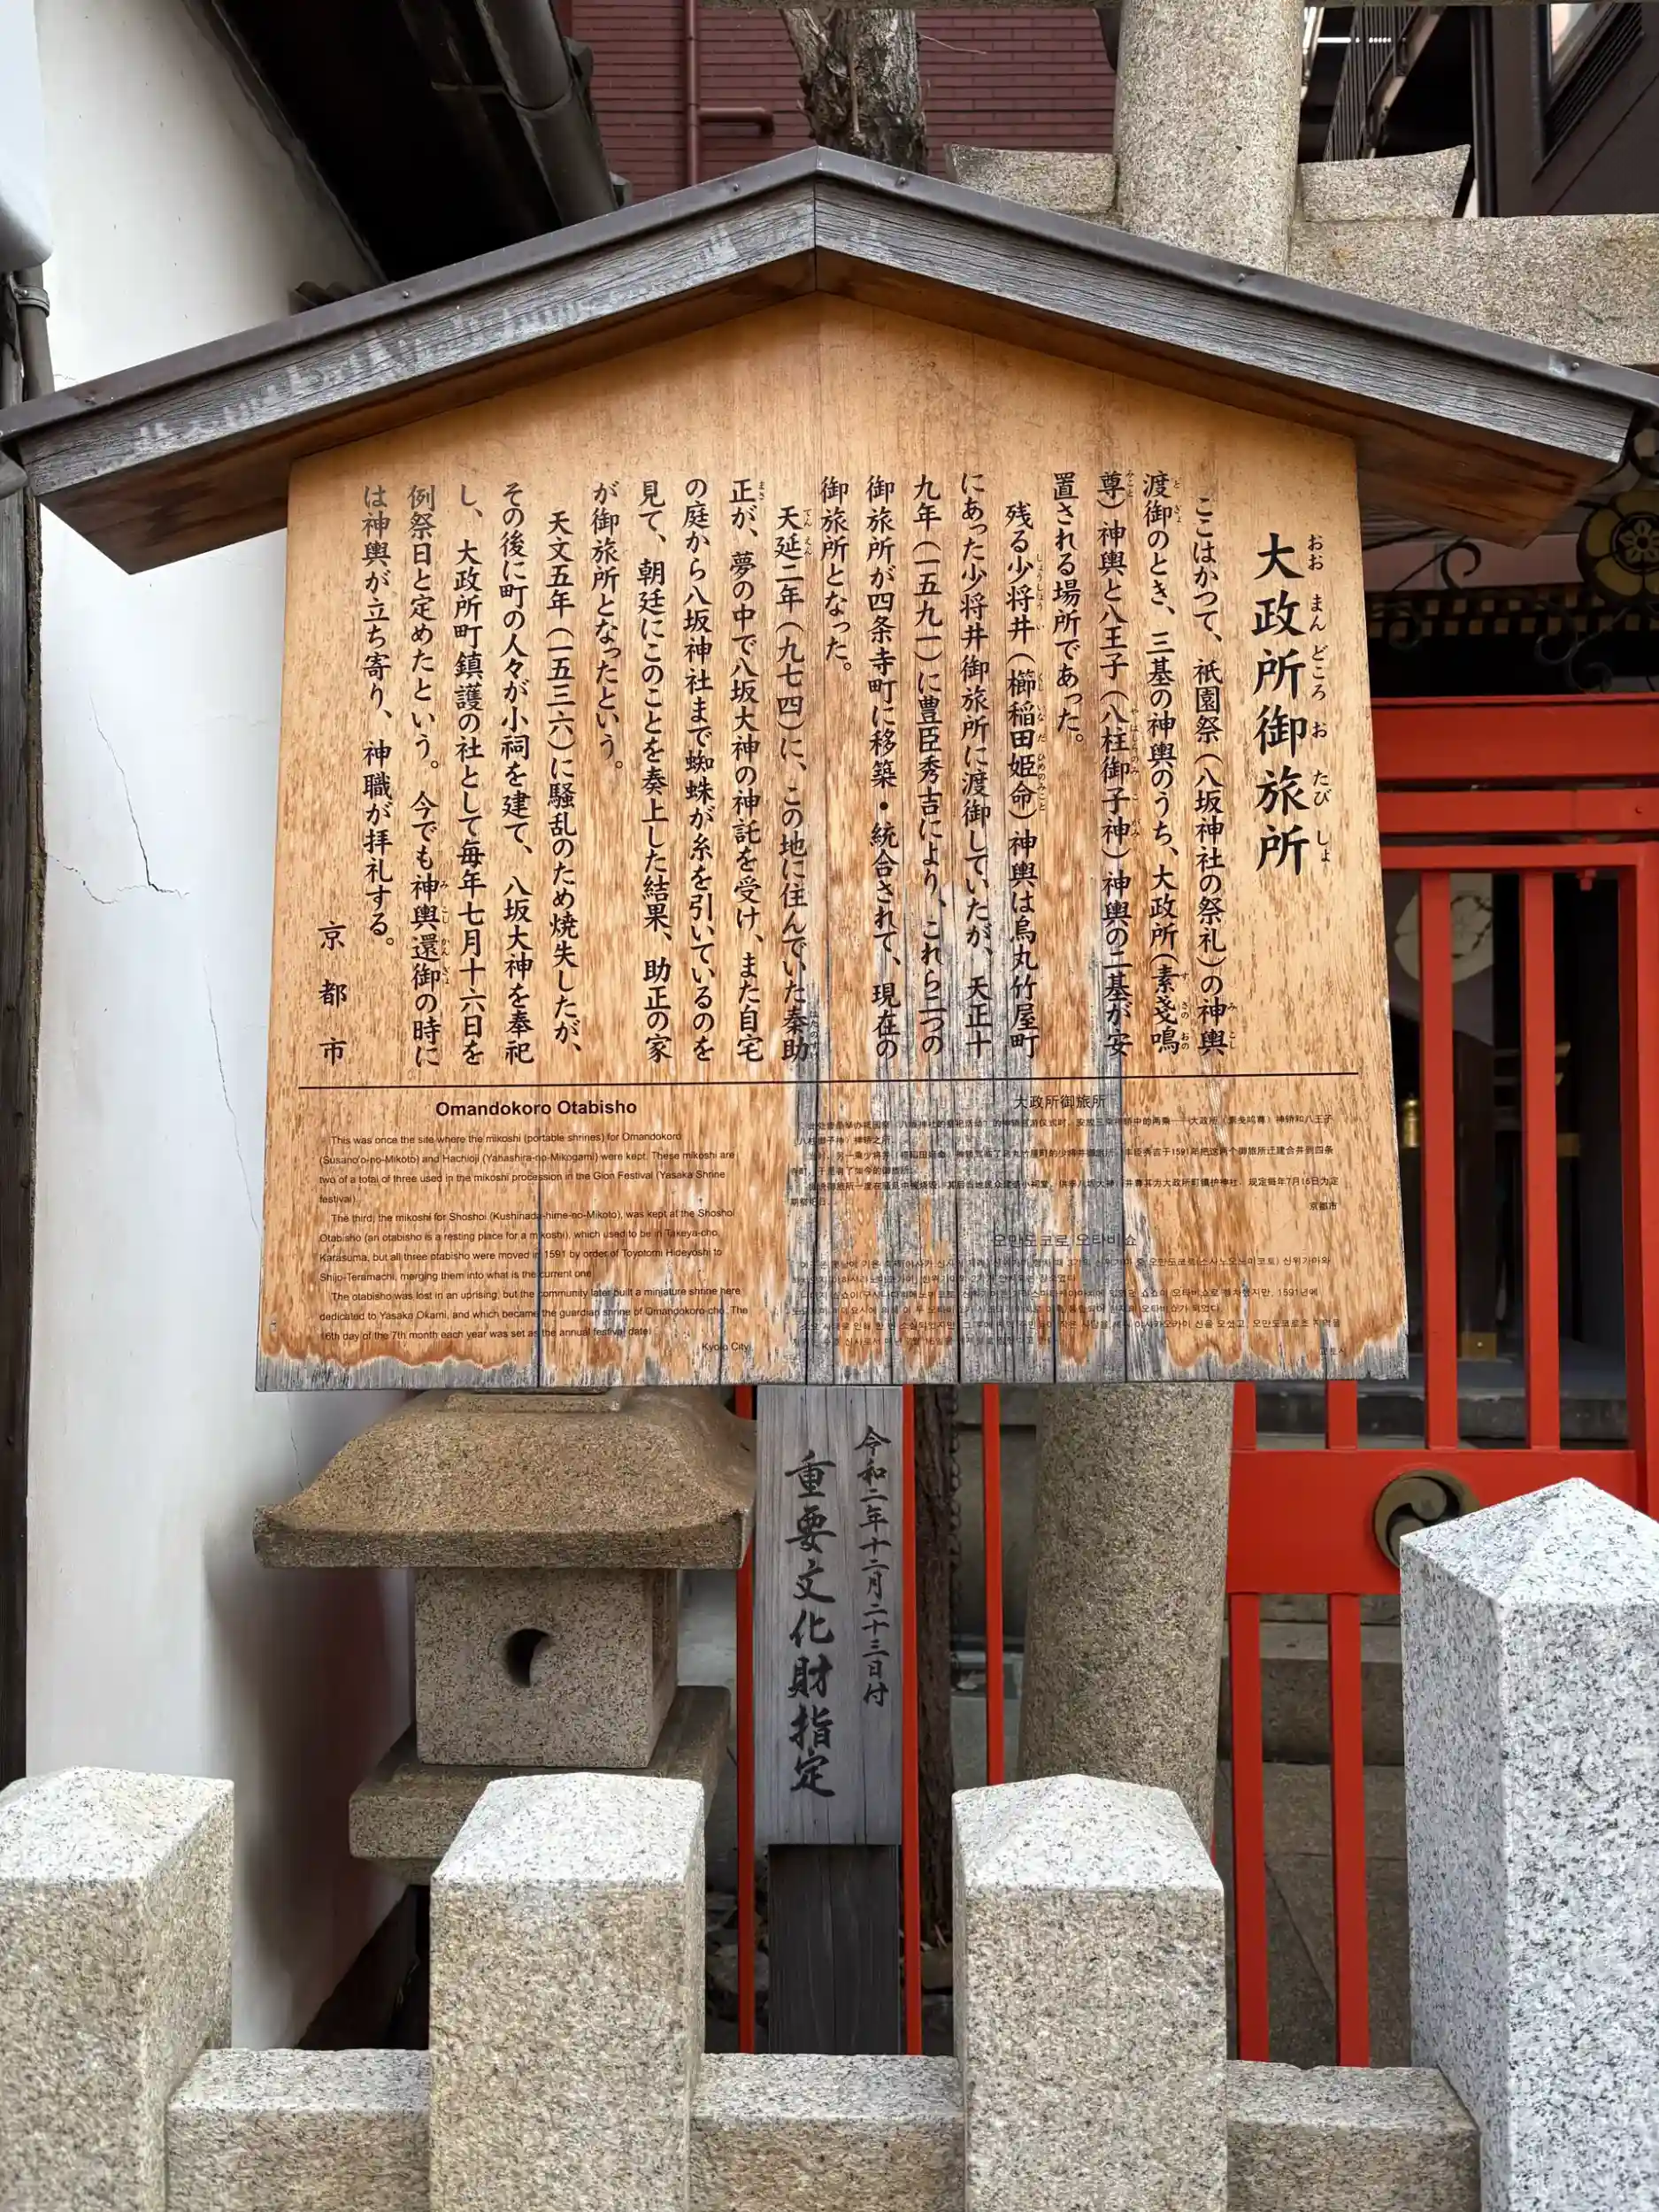 大政所御旅所
おおまんどころおたびしょ
ここはかつて、祇園祭（八坂神社の祭礼）の神輿
渡御のとき、三基の神輿のうち、大政所（素戔嗚
尊）神輿と八王子（八柱御子神）神輿の二基が安
置される場所であった。
残る少将井（櫛稲田姫命）神輿は烏丸竹屋町
にあった少将井御旅所に渡御していたが、天正十
九年（一五九一）に豊臣秀吉により、これら二つの
御旅所が四条寺町に移築・統合されて、現在の
御旅所となった。
天延二年（九七四）に、この地に住んでいた秦助
正が、夢の中で八坂大神の神託を受け、また自宅
の庭から八坂神社まで蜘蛛が糸を引いているのを
見て、朝廷にこのことを奏上した結果、助正の家
が御旅所となったという。
天文五年（一五三六）に騒乱のため焼失したが、
その後に町の人々が小祠を建て、八坂大神を奉祀
し、大政所町鎮護の社として毎年七月十六日を
例祭日と定めたという。今でも神輿還御の時に
は神輿が立ち寄り、神職が拝礼する。
京都市
Omandokoro Otabisho
This was once the site where the mikoshi (portable shrines) for Omandokoro
(Susano'o-no-Mikoto) and Hachioji (Yahashira-no-Mikogami) were kept. These mikoshi are
two of a total of three used in the mikoshi procession in the Gion Festival (Yasaka Shrine
festival).
The third, the mikoshi for Shoshoi (Kushinada-hime-no-Mikoto), was kept at the Shoshoi
Otabisho (an otabisho is a resting place for a mikoshi), which used to be in Takeya-cho,
Karasuma, but all three otabisho were moved in 1591 by order of Toyotomi Hideyoshi to
Shijo-Teramachi, merging them into what is the current one.
The otabisho was lost in an uprising, but the community later built a miniature shrine here
dedicated to Yasaka Okami, and which became the guardian shrine of Omandokoro-cho. The
16th day of the 7th month each year was set as the annual festival date.
Kyoto City
大政所御旅所
京都市
오만도코로 오타비쇼
令和二年十二月二十三日付
重要文化財指定